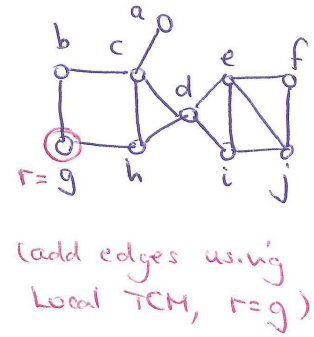 a
b c e f
d
r= g h i j
(add edges using
Local TCM, r=g)